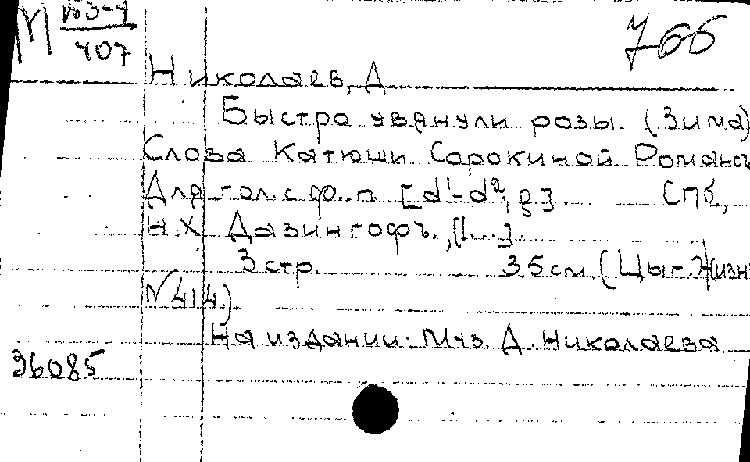 М 153-4
407
766
Николаев, Д
Быстро увянули розы. (Зима)
Слова Катюши Сорокиной Романсъ
Для гол. с ф.-п. [d¹-d², g] СПб,
Н.Х. Давингофъ, [1...].
3 стр. 35 см (Цыг. Жизнь
№ 414.)
На издании: Муз. Д. Николаева
96085